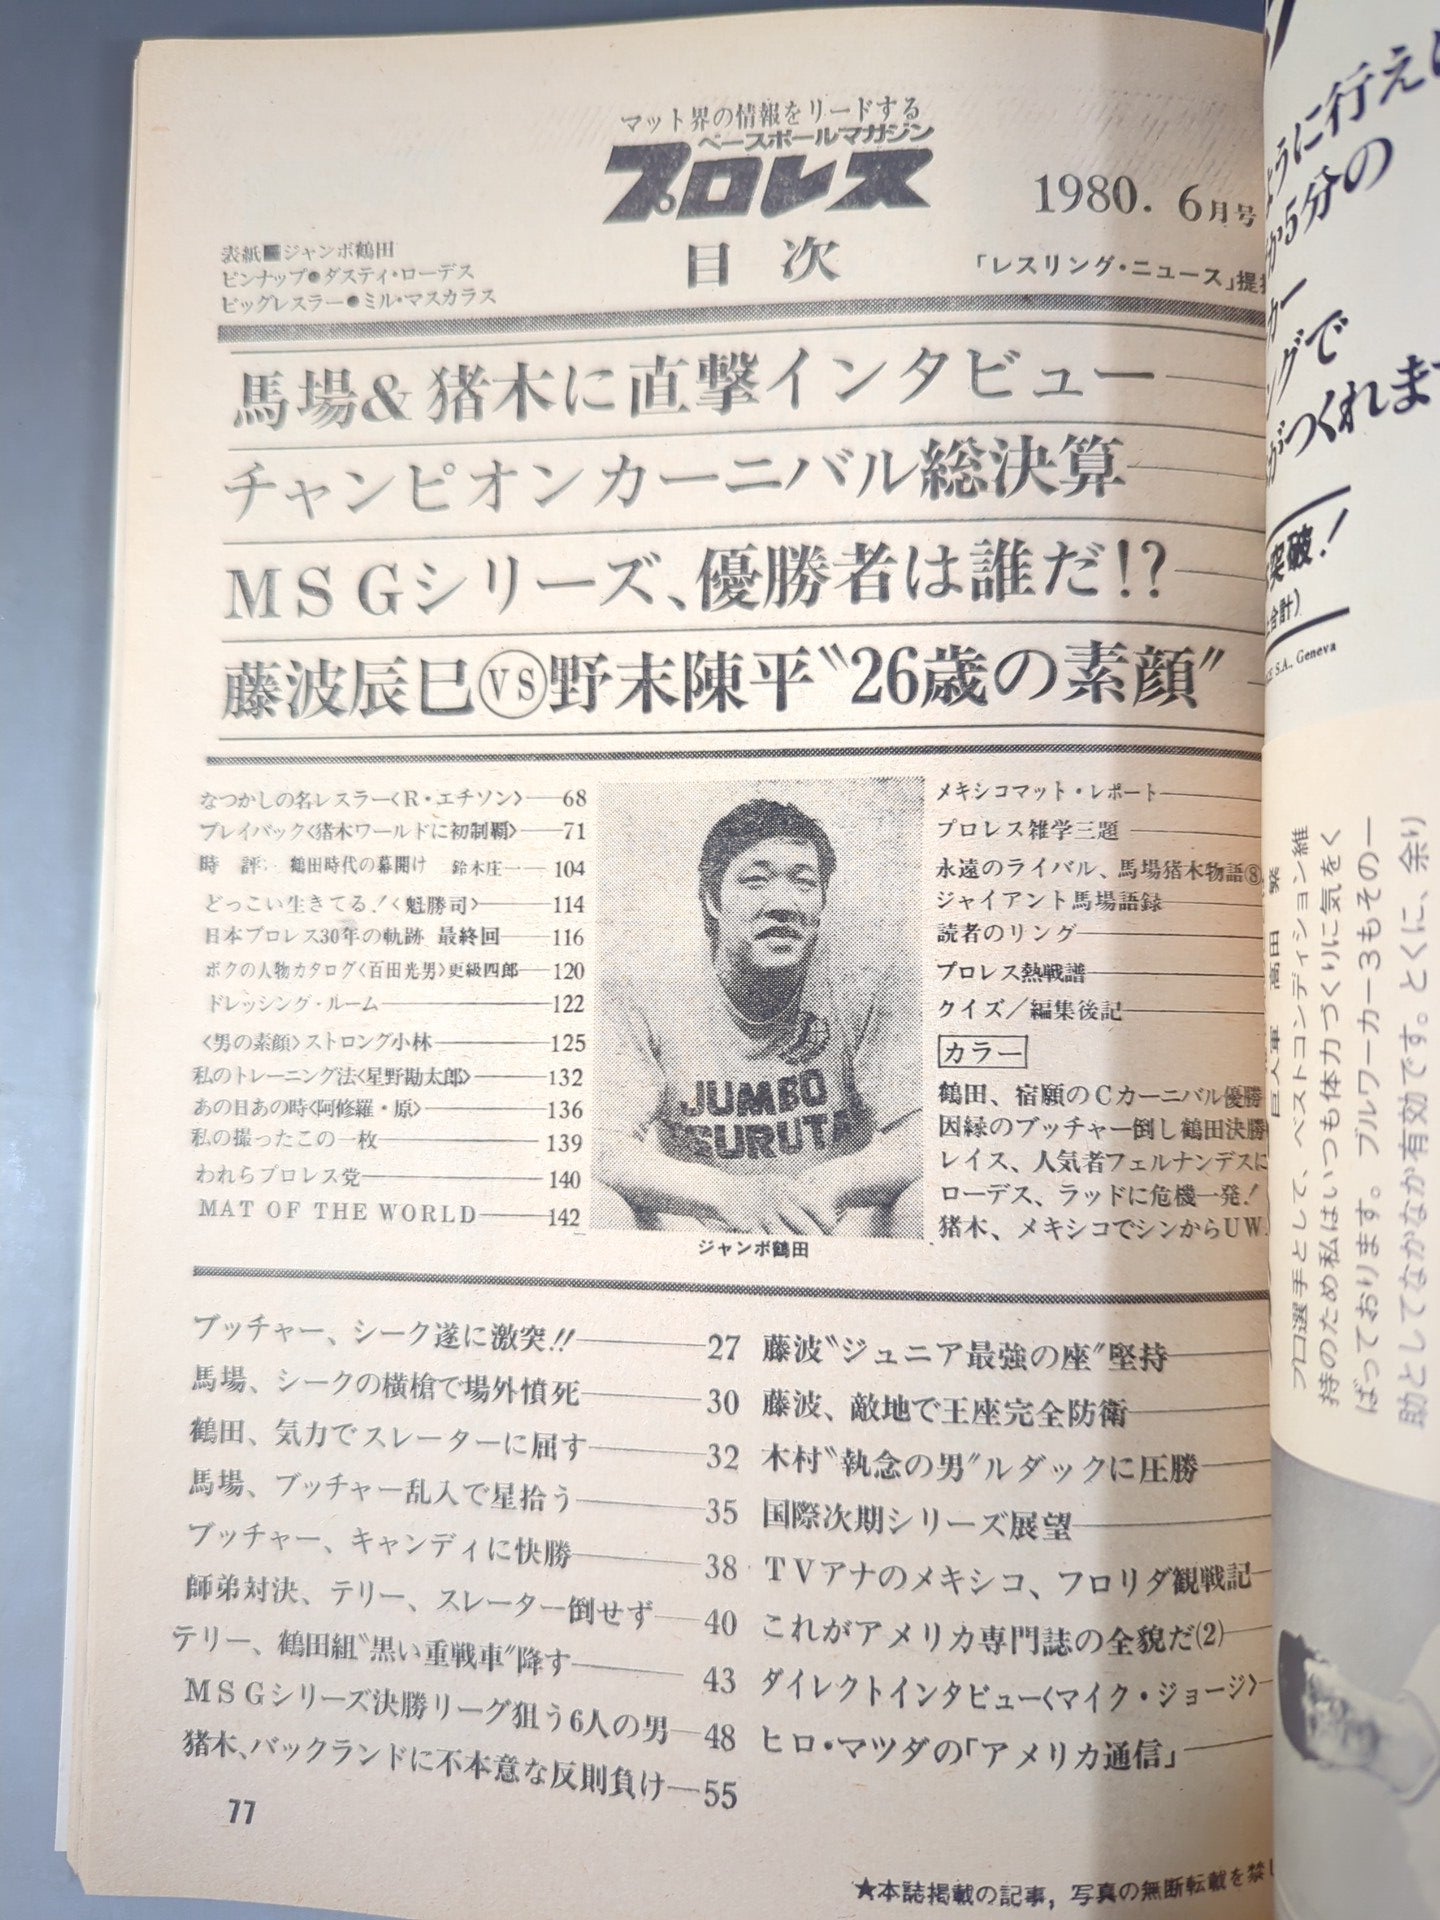 マット界の情報をリードする
ベースボールマガジン
プロレス
1980. 6月号
目次
「レスリング・ニュース」提
表紙■ジャンボ鶴田
ピンナップ●ダスティ・ローデス
ビッグレスラー●ミル・マスカラス
馬場&猪木に直撃インタビュー
チャンピオンカーニバル総決算
MSGシリーズ、優勝者は誰だ!?
藤波辰巳VS野末陳平〝26歳の素顔〟
なつかしの名レスラー〈R・エチソン〉—68
プレイバック〈猪木ワールドに初制覇〉—71
時評 鶴田時代の幕開け 鈴木庄一—104
どっこい生きてる!〈魁勝司〉—114
日本プロレス30年の軌跡 最終回—116
ボクの人物カタログ〈百田光男〉更級四郎—120
ドレッシング・ルーム—122
〈男の素顔〉ストロング小林—125
私のトレーニング法〈星野勘太郎〉—132
あの日あの時〈阿修羅・原〉—136
私の撮ったこの一枚—139
われらプロレス党—140
MAT OF THE WORLD—142
JUMBO
TSURUTA
ジャンボ鶴田
メキシコマット・レポート
プロレス雑学三題
永遠のライバル、馬場猪木物語⑧
ジャイアント馬場語録
読者のリング
プロレス熱戦譜
クイズ/編集後記
カラー
鶴田、宿願のCカーニバル優勝
因縁のブッチャー倒し鶴田決勝
レイス、人気者フェルナンデスに
ローデス、ラッドに危機一発!
猪木、メキシコでシンからUW
ブッチャー、シーク遂に激突!!—27
馬場、シークの横槍で場外憤死—30
鶴田、気力でスレーターに屈す—32
馬場、ブッチャー乱入で星拾う—35
ブッチャー、キャンディに快勝—38
師弟対決、テリー、スレーター倒せず—40
テリー、鶴田組〝黒い重戦車〟降す—43
MSGシリーズ決勝リーグ狙う6人の男—48
猪木、バックランドに不本意な反則負け—55
藤波〝ジュニア最強の座〟堅持
藤波、敵地で王座完全防衛
木村〝執念の男〟ルダックに圧勝
国際次期シリーズ展望
TVアナのメキシコ、フロリダ観戦記
これがアメリカ専門誌の全貌だ(2)
ダイレクトインタビュー〈マイク・ジョージ〉
ヒロ・マツダの「アメリカ通信」
77
★本誌掲載の記事，写真の無断転載を禁
ように行え
5分の
カー
グで
つくれま
突破!
合計)
S.A., Geneva
巨人軍 高田 繁
プロ選手として、ベストコンディション維
持のため私はいつも体力づくりに気をく
ばっております。ブルワーカー3もその一
助としてなかなか有効です。とくに、余り